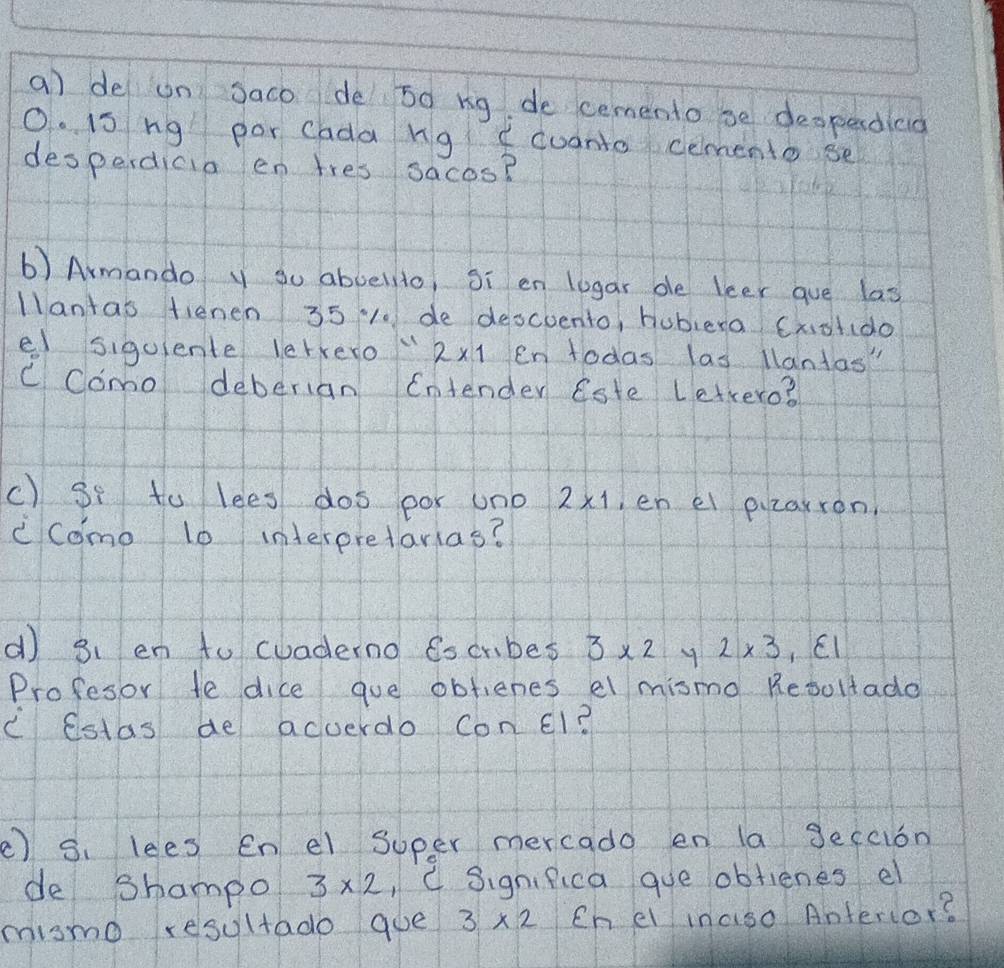 a) de un saco de 50 kg. de cemento se desperdicia
0.15 kg por cada kg ¿ cuanto cemento se
desperdicia en tres sacos?
b) Armando y su abuelito, si en lugar de leer que las
llantas tienen 35 % de descuento, hubiera Existido
el siguiente letrero "2x1 En todas las llantas"
¿ Cómo deberian Entender Este Letrero?
c) Si tu lees dos por uno 2x1, en el pizarron,
¿ Cómo lo interpretarias?
d) Si en tu cuaderno Escribes 3x2 y 2x3, El
Profesor te dice que obtienes el mismo Resultado
¿ Estas de acuerdo con El?
e) Si lees En el Super mercado en la Sección
de Shampo 3x2, ¿ Significa que obtienes el
mismo resultado que 3x2 En el inciso Anterior?